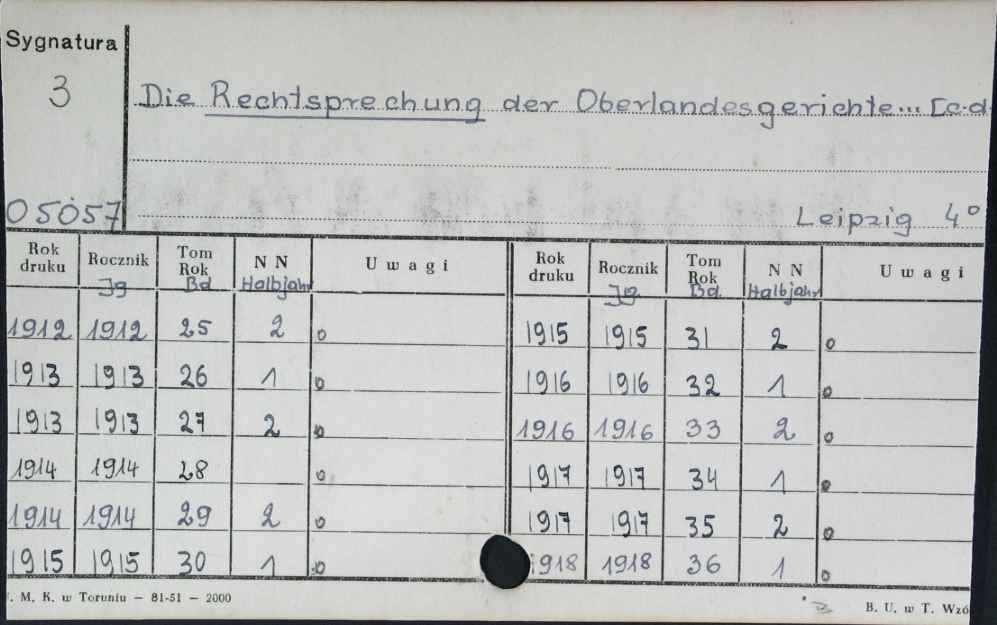 Sygnatura
3
Die Rechtsprechung der Oberlandesgerichte... [c.d
05057
Leipzig 4°
Rok druku Rocznik Tom Rok N N Uwagi Rok druku Rocznik Tom Rok N N Uwagi
Jg Bd Halbjahr Jg. Bd. Halbjahr
1912 1912 25 2 o 1915 1915 31 2 o
1913 1913 26 1 o 1916 1916 32 1 o
1913 1913 27 2 o 1916 1916 33 2 o
1914 1914 28 o 1917 1917 34 1 o
1914 1914 29 2 o 1917 1917 35 2 o
1915 1915 30 1 o 1918 1918 36 1 o
. M. K. w Toruniu — 81-51 — 2000
B. U. w T. Wzó